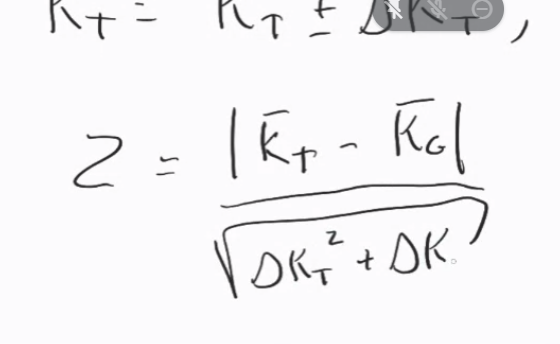 K_T = K_T ± ΔK_T ,
Z = |K̄_T - K̄_G| / √(ΔK_T² + ΔK